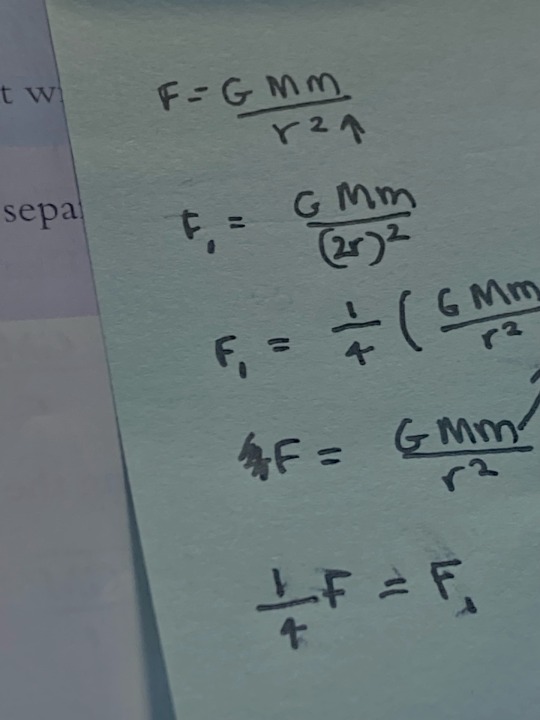 t w
sepa
F = G M m / r² ↑
F₁ = G M m / (2r)²
F₁ = 1/4 ( G M m / r²
F = G M m / r²
1/4 F = F₁